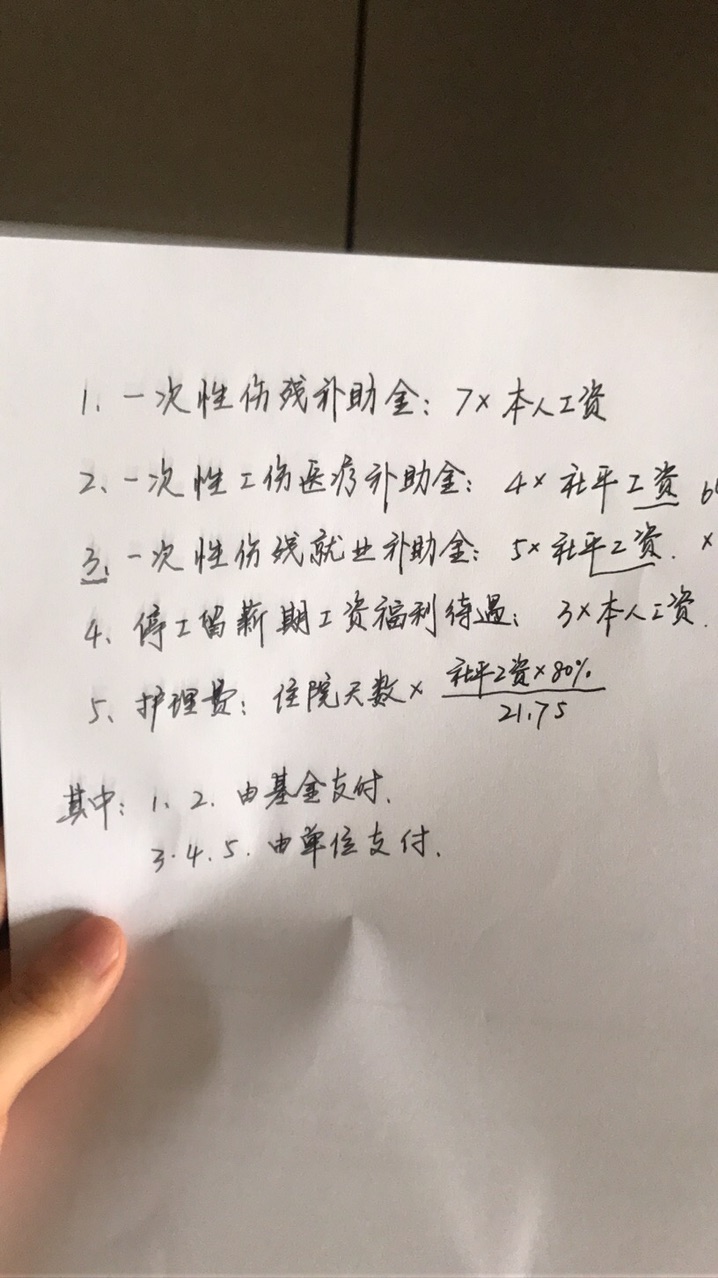 1、一次性伤残补助金：7×本人工资
2、一次性工伤医疗补助金：4×社平工资 6
3、一次性伤残就业补助金：5×社平工资. ×
4、停工留薪期工资福利待遇：3×本人工资.
5、护理费：住院天数×社平工资×80%/21.75
其中：1、2、由基金支付.
3.4.5.由单位支付.